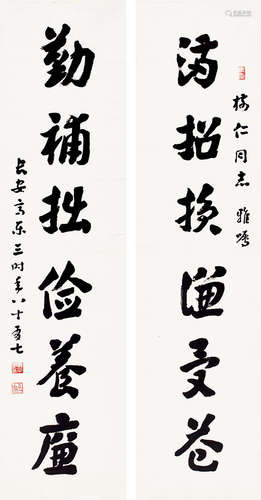 楼仁同志雅嘱
满招损谦受益
勤补拙俭养廉
长安高乐三时年八十有七